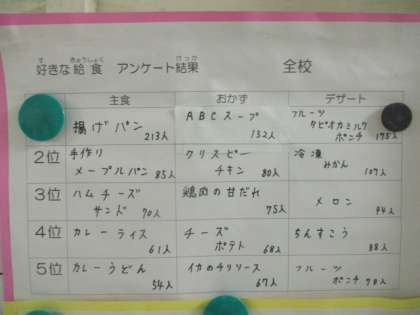 好きな給食 アンケート結果 全校
主食 おかず デザート
揚げパン 213人
ABCスープ 132人
フルーツ
タピオカミルク
ポンチ 175人
2位
手作り
メープルパン 85人
クリスピー
チキン 80人
冷凍
みかん 107人
3位
ハムチーズ
サンド 70人
鶏肉の甘だれ
75人
メロン
94人
4位
カレーライス
61人
チーズ
ポテト 68人
ちんすこう
88人
5位
カレーうどん
54人
イカのチリソース
67人
フルーツ
ポンチ 70人